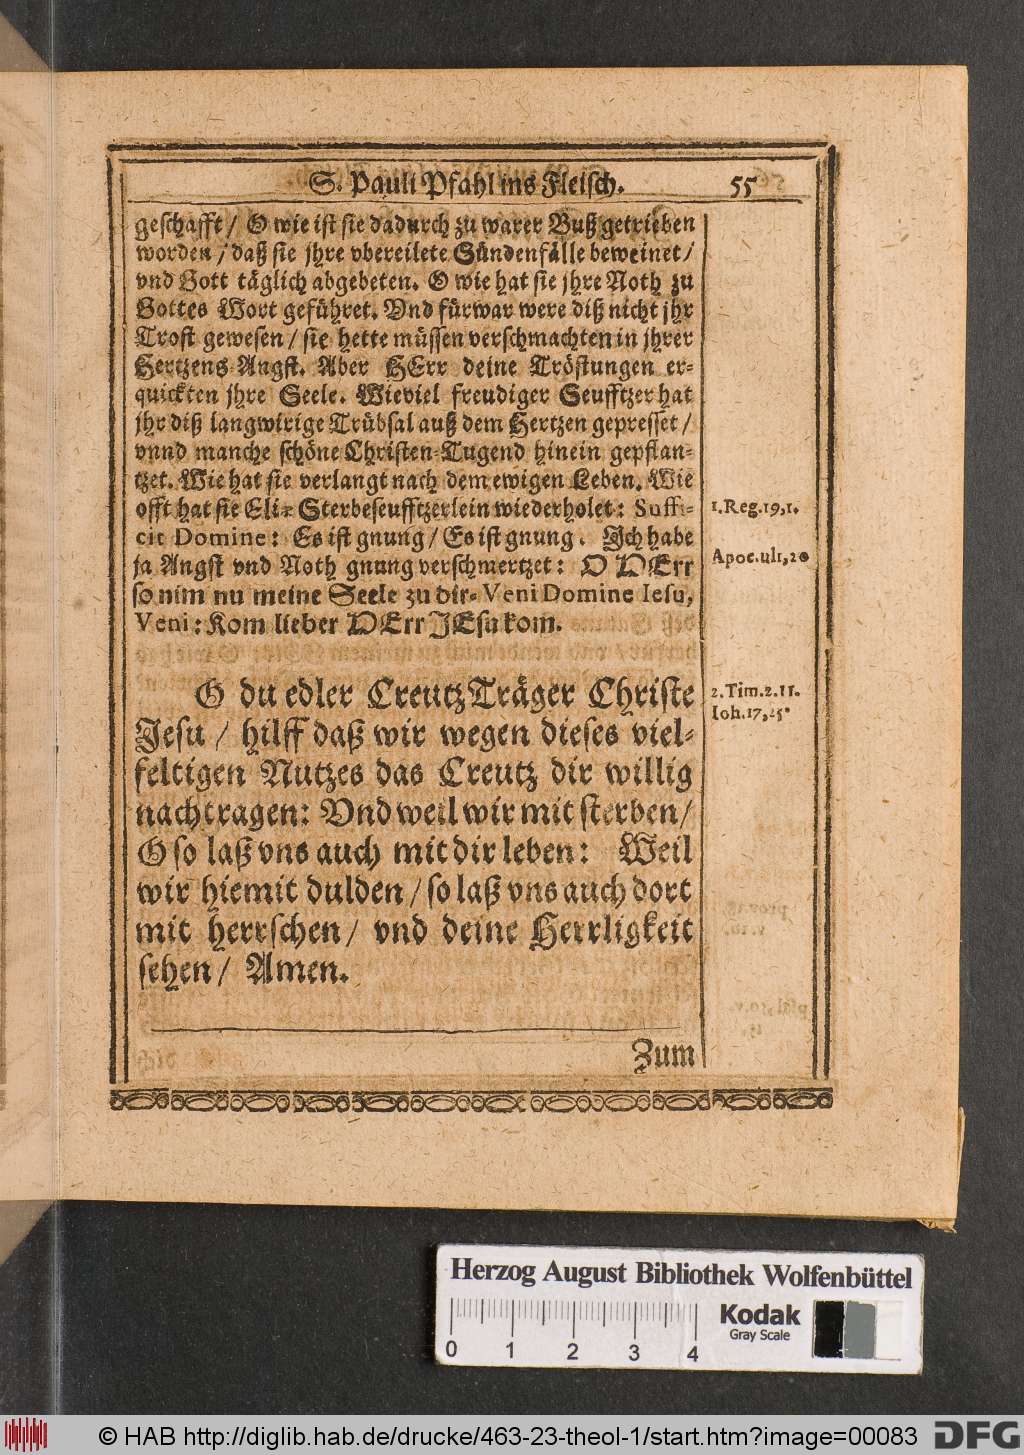 S. Pauli Pfahl ins Fleisch. 55
geschafft / O wie ist sie dadurch zu warer Buß getrieben
worden / daß sie jhre vbereilete Sündenfälle beweinet /
vnd Gott täglich abgebeten. O wie hat sie jhre Noth zu
Gottes Wort geführet. Vnd fürwar were diß nicht jhr
Trost gewesen / sie hette müssen verschmachten in jhrer
Hertzens-Angst. Aber HErr deine Tröstungen er-
quickten jhre Seele. Wieviel freudiger Seufftzer hat
jhr diß langwirige Trübsal auß dem Hertzen gepresset /
vnnd manche schöne Christen-Tugend hinein gepflan-
tzet. Wie hat sie verlangt nach dem ewigen Leben. Wie
offt hat sie Eli- Sterbeseufftzerlein wiederholet: Suffi-
1.Reg.19,1.
cit Domine: Es ist gnung / Es ist gnung. Jch habe
ja Angst vnd Noth gnung verschmertzet: O HErr
Apoc.ult,20
so nim nu meine Seele zu dir- Veni Domine Iesu,
Veni: Kom lieber HErr JEsu kom.
O du edler CreutzTräger Christe
2.Tim.2.11.
Jesu / hilff daß wir wegen dieses viel-
Ioh.17,25.
feltigen Nutzes das Creutz dir willig
nachtragen: Vnd weil wir mit sterben /
O so laß vns auch mit dir leben: Weil
wir hiemit dulden / so laß vns auch dort
mit herrschen / vnd deine Herrligkeit
sehen / Amen.
Zum
Herzog August Bibliothek Wolfenbüttel
Kodak
Gray Scale
0 1 2 3 4
© HAB http://diglib.hab.de/drucke/463-23-theol-1/start.htm?image=00083
DFG